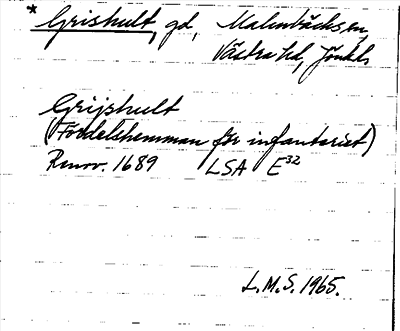 * Grishult, gd, Malmbäcks sn,
Västra hd, Jönk. l.
Grijshult
(Fördelshemman för infanteriet)
Renov. 1689 LSA E32
L.M.S. 1965.